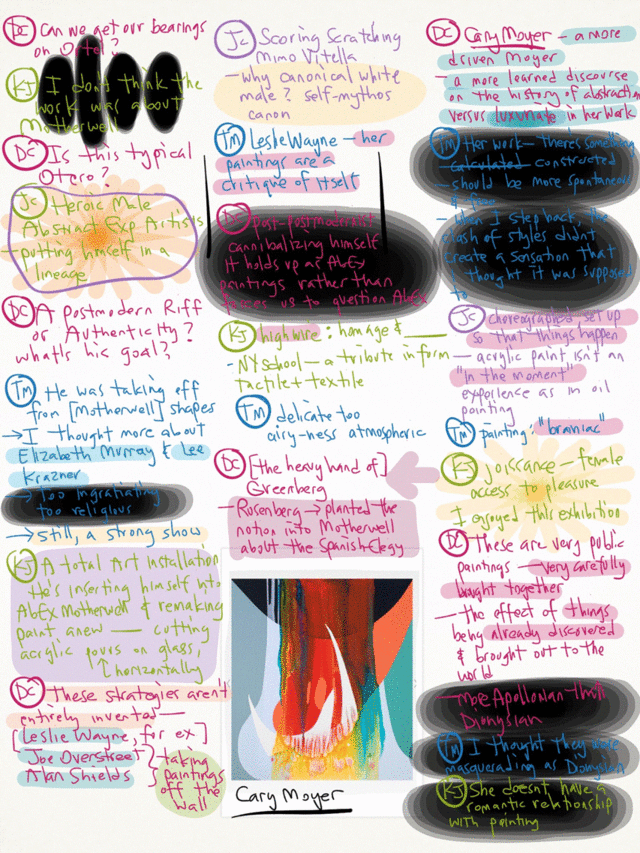 DC Can we get our bearings
on Otero?
KJ I don't think the
work was about
Motherwell
DC Is this typical
Otero?
JC Heroic Male
Abstract Exp Artists
- putting himself in a
lineage
DC A postmodern Riff
or Authenticity?
what's his goal?
TM He was taking off
from [Motherwell] shapes
→ I thought more about
Elizabeth Murray & Lee
Krazner
→ Too ingratiating
too religious
→ Still, a strong show
KJ A total Art Installation
He's inserting himself into
AbEx Motherwell & remaking
paint anew — cutting
acrylic pours on glass,
↑ horizontally
DC These strategies aren't
entirely invented —
[Leslie Wayne, for ex]
Joe Overstreet
Alan Shields
} taking
paintings
off the
wall
JC Scoring Scratching
Mimo Vitella
- Why canonical white
male? self-mythos
canon
TM Leslie Wayne - her
paintings are a
critique of itself
DC Post-postmodernist
cannibalizing himself
It holds up as AbEx
paintings rather than
forces us to question AbEx
KJ high wire: homage & ____
- NY School - a tribute in form
tactile + textile
TM delicate too
airy-ness atmospheric
DC [the heavy hand of]
Greenberg
- Rosenberg → planted the
notion into Motherwell
about the Spanish Elegy
Cary Moyer
DC Cary Moyer - a more
driven Moyer
- a more learned discourse
on the history of abstraction
versus luxuriate in her work
TM Her work - there's something
- calculated constructed
- should be more spontaneous
& free
- When I step back, the
clash of styles didn't
create a sensation that
I thought it was supposed
to
JC choreographed set up
so that things happen
- acrylic paint isn't an
"in the moment"
experience as in oil
painting
TM painting: "brainiac"
KJ joissance - female
access to pleasure
I enjoyed this exhibition
DC These are very public
paintings - very carefully
brought together
- the effect of things
being already discovered
& brought out to the
world
- More Apollonian than
Dionysian
TM I thought they were
masquerading as Dionysian
KJ She doesn't have a
romantic relationship
with painting